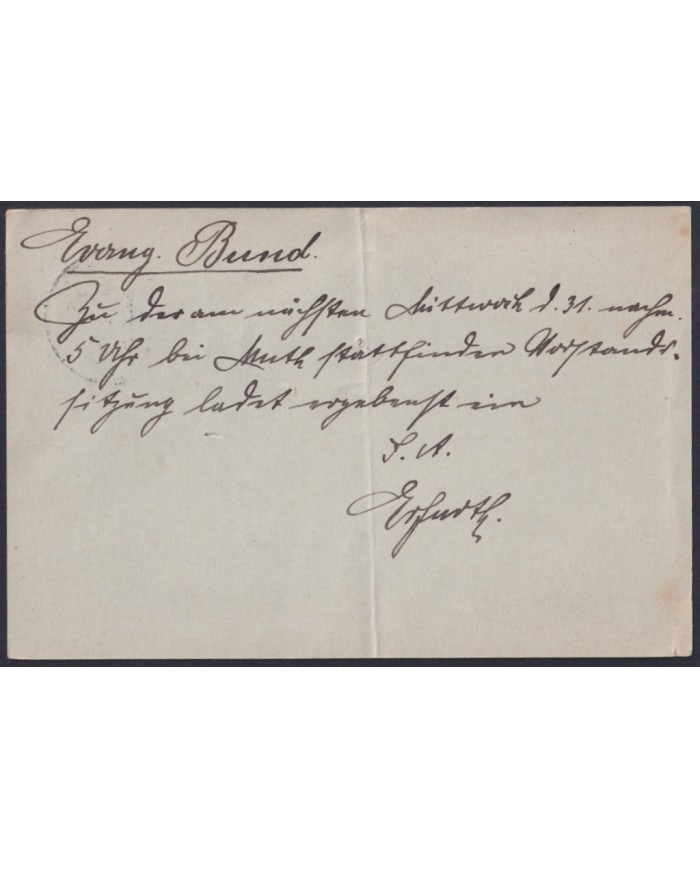 Evang. Bund.
Zu der am nächsten Mittwoch d. 31. nachm.
5 Uhr bei Muth stattfinden Vorstands-
sitzung ladet ergebenst ein
I. A.
Erfurth.